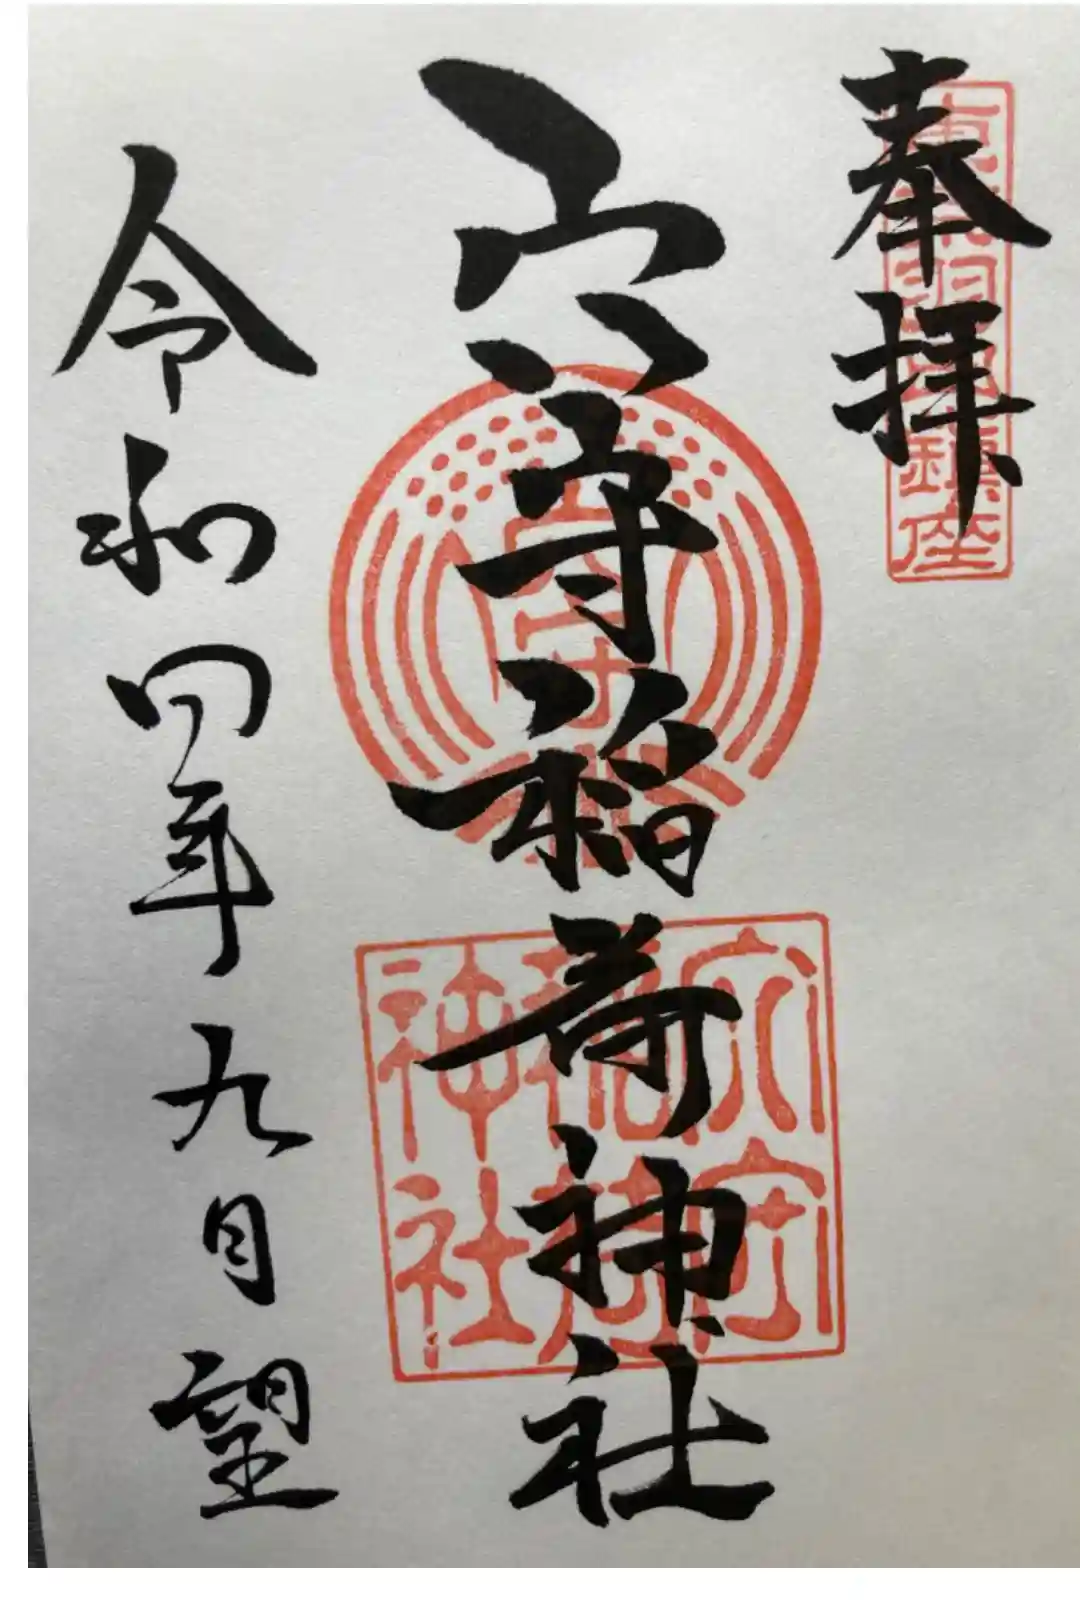 奉拝
東京羽田鎮座
穴守稲荷神社
穴守
穴守稲荷神社
令和四年九月望